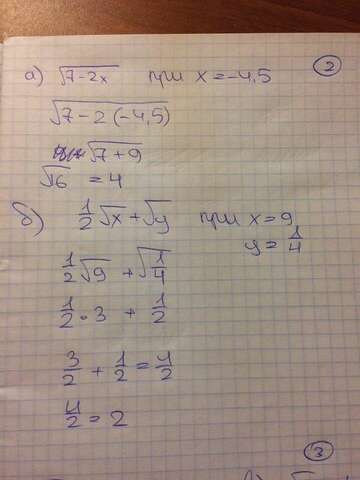 2
а) √7-2x при x=-4,5
√7-2(-4,5)
√7+9
√16 = 4
б) 1/2 √x + √y при x=9
y=1/4
1/2 √9 + √1/4
1/2 · 3 + 1/2
3/2 + 1/2 = 4/2
4/2 = 2
3